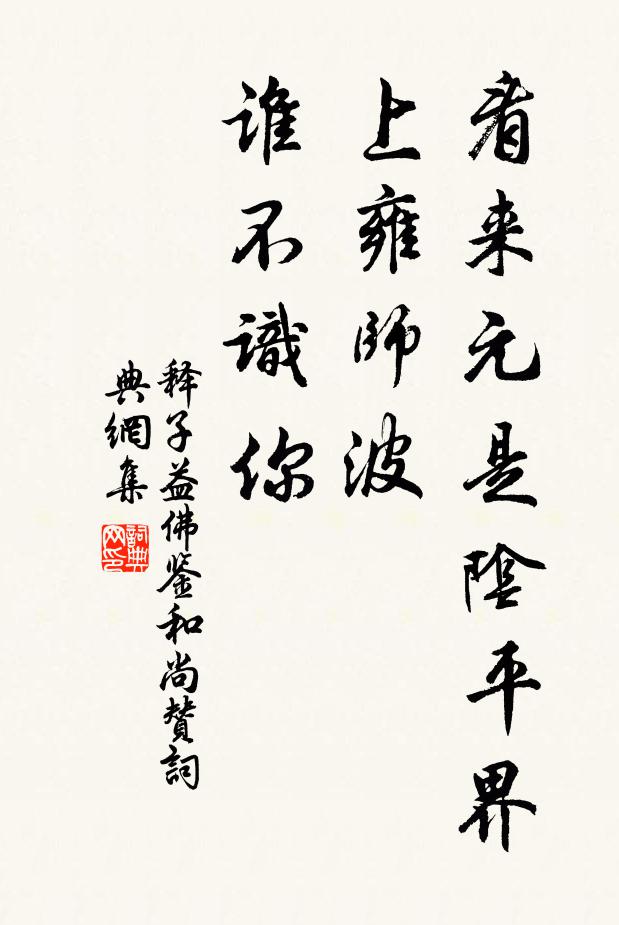 看来元是陰平界
上雍師波
谁不識你
释子益佛鉴和尚赞詞
典網集
詞典网印